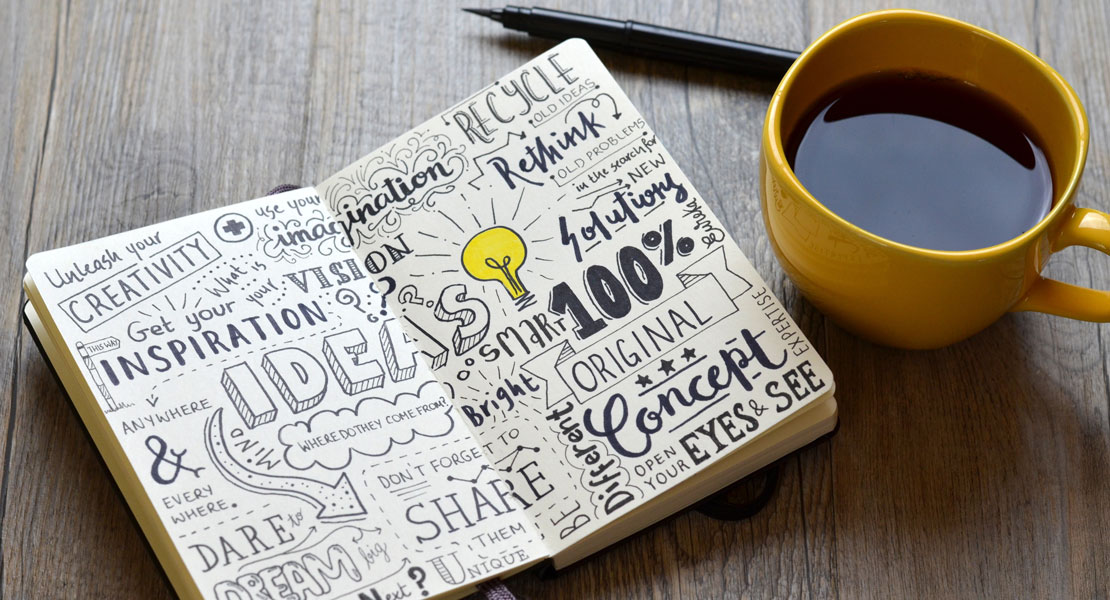 Unleash your
CREATIVITY
use your
imagination
What is
your VISION
Get your
INSPIRATION
??
THIS WAY
IDEAS
ANYWHERE
&
EVERY
WHERE.
MIND
WHERE DO THEY COME FROM?
DON'T FORGET TO
SHARE
THEM
DARE to
DREAM big
Next?
UNIQUE
RECYCLE
OLD IDEAS
Rethink
OLD PROBLEMS
in the search for
NEW
Solutions
Eureka
100%
SMART
ORIGINAL
EXPERTISE
Bright
Concept
BE
Different
OPEN
YOUR
EYES & SEE